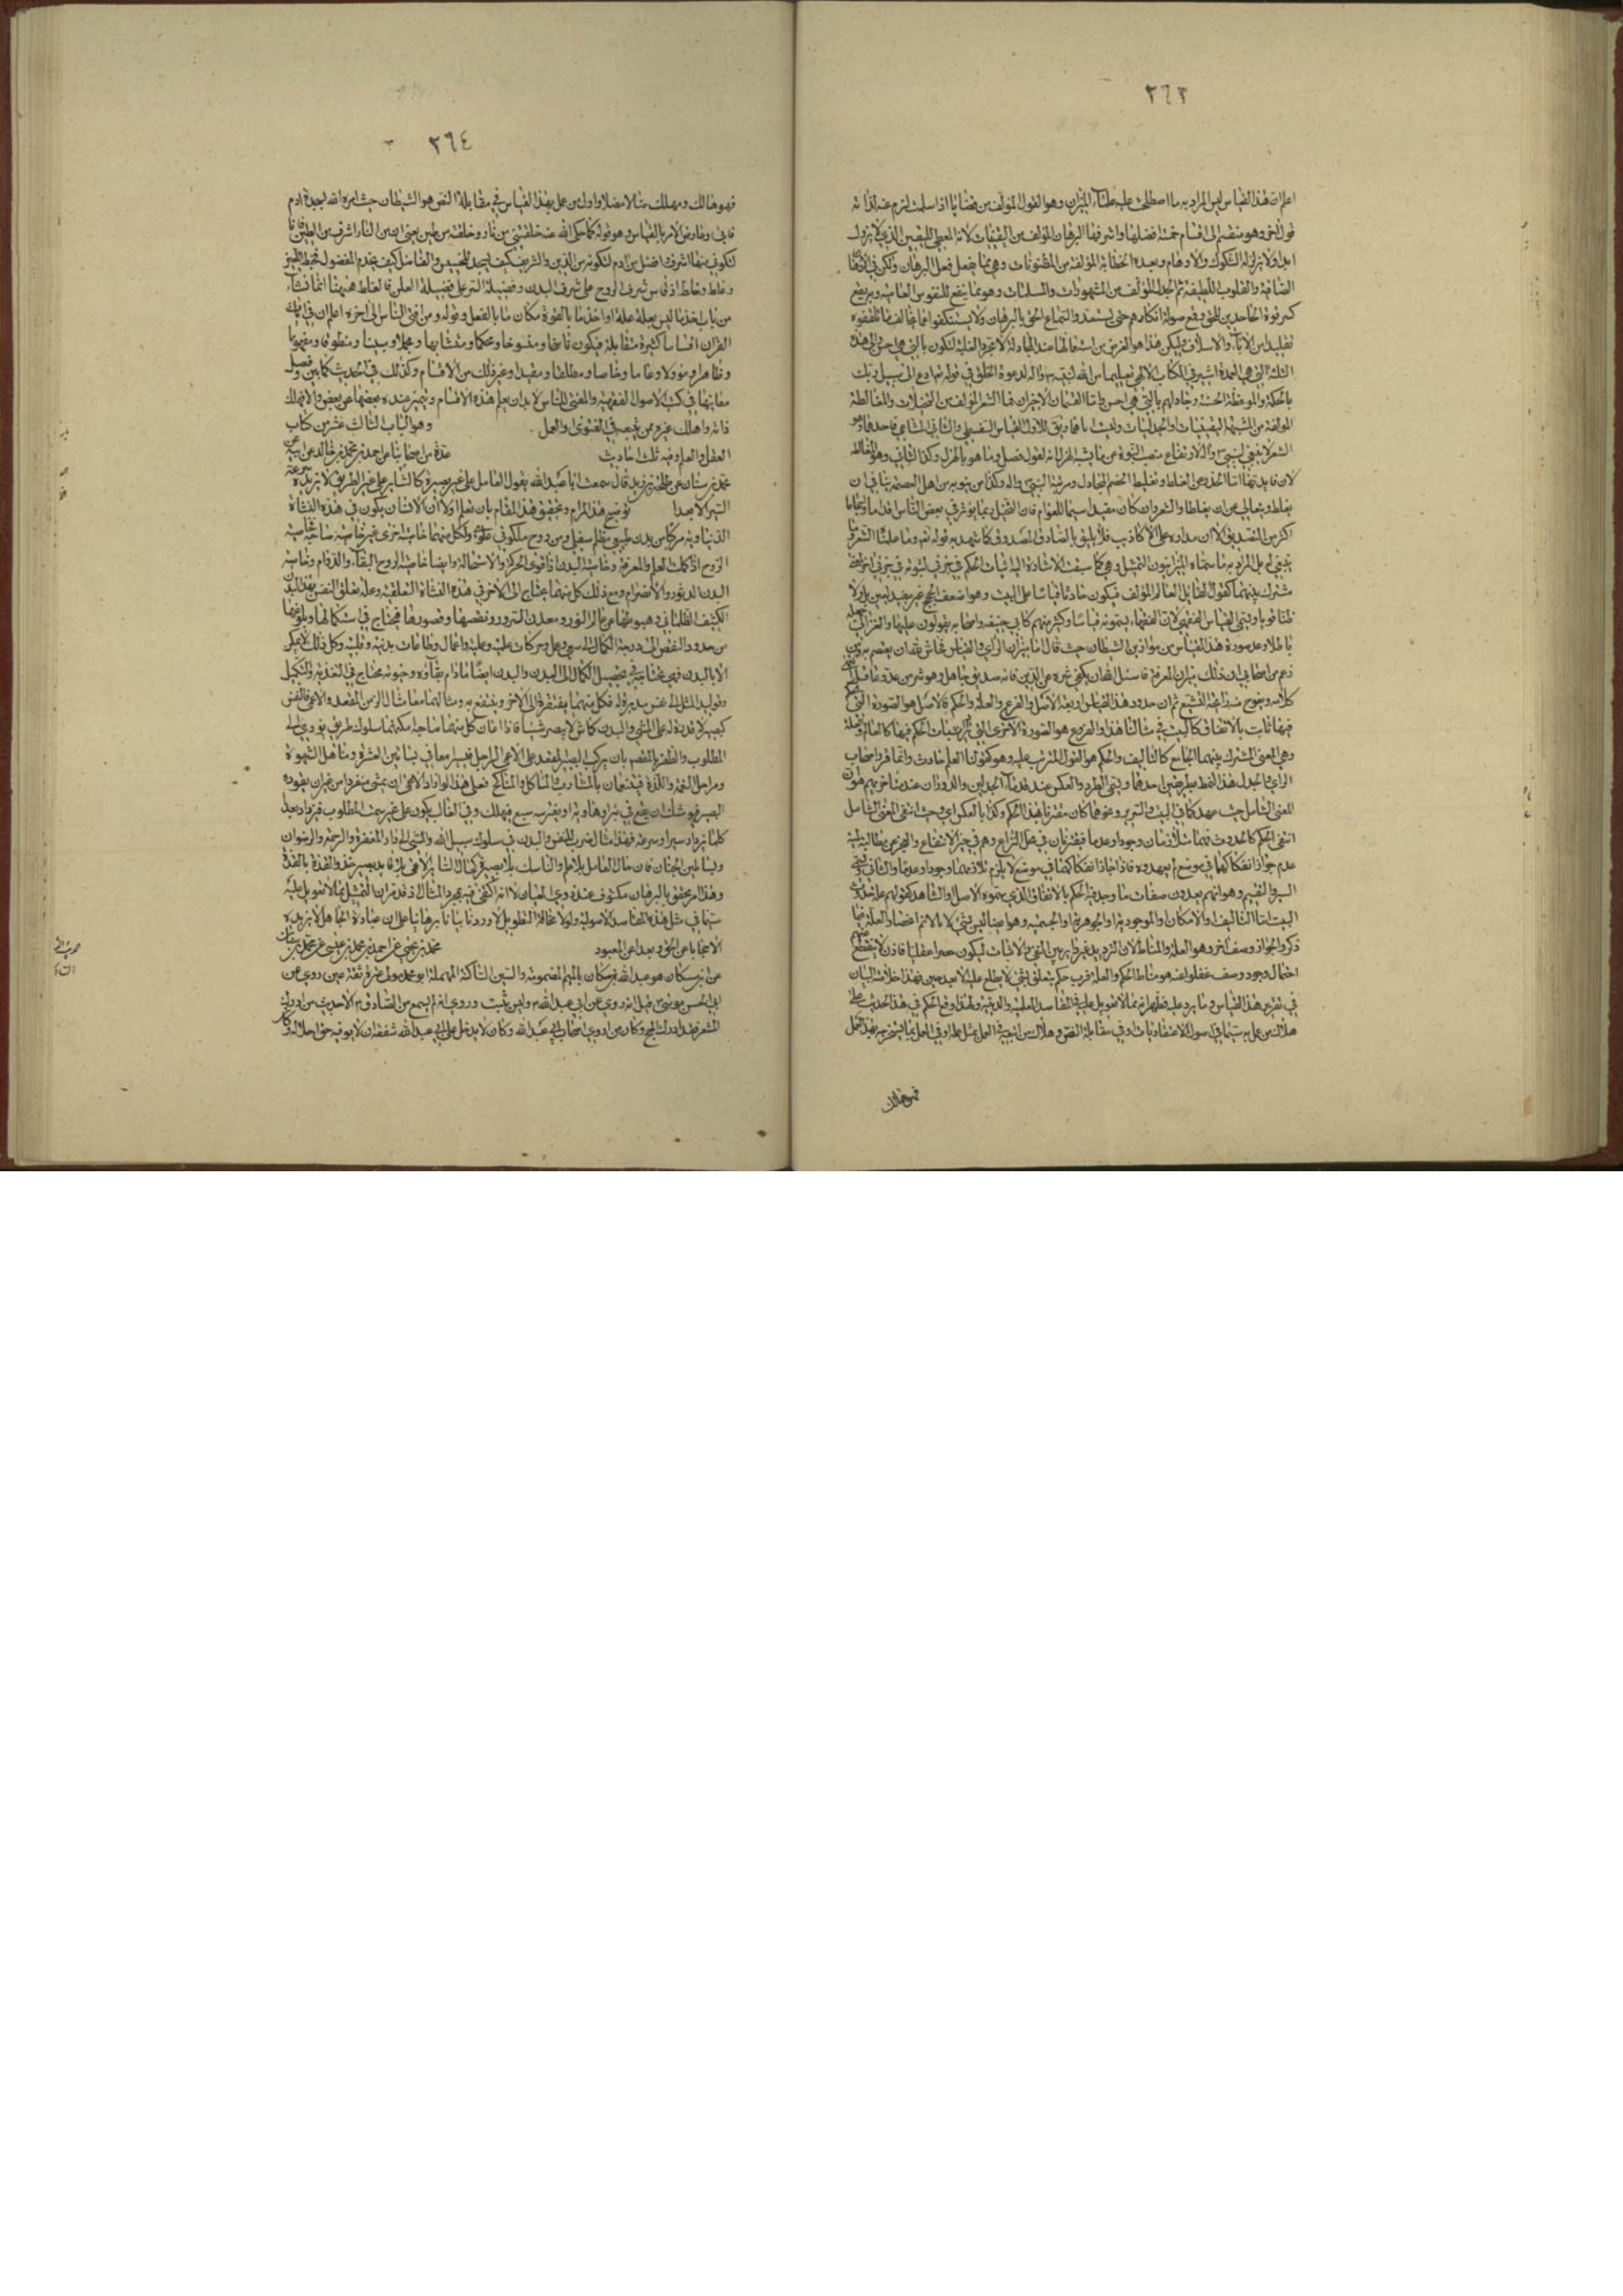 ٢٦٣
اعلم ان هذا القياس ليس المراد به ما اصطلحت عليه علماء الميزان وهو القول المؤلف من قضايا اذا سلمت لزم عنه لذاته
قول اخر وهو منقسم الى اقسام خمسة افضلها واشرفها البرهان المؤلف من اليقينيات لانه المعطي لليقين الذي لا يزول
ابدا ولا يزيله الشكوك والاوهام وبعده الخطابة المؤلفة من المظنونات وهي مما يفعل فعل البرهان ولكن في
الصافية والقلوب اللطيفة ثم الجدل المؤلف من المشهورات والمسلمات وهو مما ينفع للنفوس العامية وبه يقع
كسر قوة الجاحدين للحق وقمع صولة انكارهم حتى يستعدوا لسماع الحق بالبرهان ولا يستنكفوا عما يخالف
تقليدا من الاباء والاسلاف وليكن هذا هو الغرض من استعمالها عند المجادلة لا مجرد الغلبة لتكون بالتي هي احسن والى هذه
الثلاثة التي هي العمدة اشير في الكتاب الالهي تعليما من الله لنبيه واله لدعوة الخلق في قوله تعالى ادع الى سبيل ربك
بالحكمة والموعظة الحسنة وجادلهم بالتي هي احسن واما القسمان الاخيران فهما الشعر المؤلف من المخيلات والمغالطة
المؤلفة من المشبهة اليقينيات والجدليات
الشعر لا ينبغي لنبي
لان فايدتهما اما الحذر عن الغلط او تغليط الخصم المجادل ومرتبة النبي واله وكذا من ينوبه من اهل العصمة ينافي ان
يغلط ويتعالى عن ان يغالط والشعر وان كان مفيدا سيما للعوام فان التخيل ربما يؤثر في بعض الناس
اكثر من التصديق الا ان مداره على الاكاذيب فلا يليق بالصادق المصدوق كما شهد به قوله تعالى وما علمناه الشعر وما
ينبغي له بل المراد به ما سماه الميزانيون التمثيل وهي كما سبقت الاشارة اليه اثبات الحكم في جزئي لثبوته في جزئي اخر لمعنى
مشترك بينهما كقول القايل العالم مؤلف فيكون حادثا قياسا على البيت وهو اضعف الحجج غير مفيد لليقين بل ولا
ظنا قويا ويسمى القياس الفقهي لان الفقهاء يسمونه قياسا وكثير منهم كابي حنيفة واصحابه يعولون عليها والغزالي
باطلا وعد مودة هذا القياس من موازين الشيطان حيث قال اما ميزان الراي والقياس فحاش لله ان يعتصم به ومن
زعم من اصحابي ان ذلك ميزان المعرفة فاسئل الله ان يكفي شره عن الدين فانه صديق جاهل وهو شر من عدو عاقل
كلامه ويفوح منه رايحة التشيع ثم ان حدود هذا القياس اربعة الاصل والفرع والعلة والحكم فالاصل هو الصورة التي
فيها ثابت بالاتفاق كالبيت في مثالنا هذا والفرع هو الصورة الاخرى التي اثبات الحكم فيها كالعالم
وهي المعنى المشترك بينهما الجامع كالتاليف والحكم هو القول المترتب عليه وهو كقولنا العالم حادث واثما قرر اصحاب
الراي والجدل هذا النمط بطريقين احدهما ويسمى الطرد والعكس عند قدماء الجدليين والدوران عند متاخريهم هو
المعنى الشامل حيث عهد كما في البيت والسرير ونحوهما كان مقترنا بهذا الحكم وكذا بالعكس اي حيث انتفى المعنى الشامل
انتفى الحكم كالحدوث فهما متلازمان وجودا وعدما فيقترنان في محل النزاع
عدم جواز انفكاكهما في موضع لم يعهدوه فاذا جاز انفكاكهما في موضع لا يلزم تلازمهما وجودا وعدما والثاني
السبر والتقسيم وهو انهم يعدون صفات ما وجد فيه الحكم بالاتفاق الذي يسموه الاصل والشاهد كقولهم علة حدوث
البيت اما التاليف او الامكان او الموجودية او الجوهرية او الجسمية
ذكر والجواز وصف اخر وهو العلة والمناط
احتمال وجود وصف غفلوا عنه هو مناط الحكم والعلة فرب حكم يتعلق بشئ لا يطلع عليه الا بعد حين فهذا خلاصة البيان
في تقرير هذا القياس وما يرد عليه فظهر انه مما لا تعويل عليه
هلاك من عمل به سيما في اصول الاعتقاديات او في مقابلة النص
فهو هالك
٢٦٤
فهو هالك ومهلك ضالا مضلا واول من عمل بهذا القياس في مقابلة النص هو الشيطان حيث امره الله بسجدة ادم
فابى وعارض الامر بالقياس وهو قوله كما حكى الله عنه خلقتني من نار وخلقته من طين يعني ان من النار اشرف من الطين فانا
لكوني منها اشرف افضل من ادم لتكونه من الدين والشريف كيف يسجد للخسيس والفاضل كيف يخدم المفضول
وغلط وغالط اذ قاس شرف الروح على شرف البدن وفضيلة السر على فضيلة العلن فالغلط هيهنا انما نشاء
من باب اخذ ما ليس بعلة علة او اخذ ما بالقوة مكان ما بالفعل وقوله ومن افتى الناس الى اخره اعلم ان في
القران اقساما كثيرة متقابلة فيكون ناسخا ومنسوخا ومحكما ومتشابها ومجملا ومبينا ومنطوقا ومفهوما
وظاهرا ومؤولا وعاما وخاصا ومطلقا ومقيدا وغير ذلك من الاقسام وكذلك في الحديث كما بين وفصل
معانيها في كتب الاصول الفقهية والمفتي للناس لابد ان يعلم هذه الاقسام ويتميز عنده بعضها عن بعض والا فهلك
فانه واهلك غيره ممن يتبعه في الفتوى والعمل . وهو الباب الثالث عشر من كتاب
العقل والعلم وفيه ثلث احاديث عدة من اصحابنا عن احمد بن محمد بن خالد عن ابيه عن
محمد بن سنان عن طلحة بن زيد قال سمعت ابا عبد الله يقول العامل على غير بصيرة كالساير على غير الطريق لا يزيده سرعة
السير الا بعدا توضيح هذا المرام وتحقيق هذا المقام بان نعلم اولا ان الانسان يكون في هذه النشاة
الدنياوية مركبا من بدن طبيعي مظلم سفلي ومن روح ملكوتي علوي ولكل منهما خاصية اخرى غير خاصية صاحبه
الروح ادراكات العلم والمعرفة وخاصية البدن قوى الحركة والاستحالة وايضا خاصية الروح البقاء والدوام وخاصية
البدن الدثور والانصرام ومع ذلك كل منهما يحتاج الى الاخر في هذه النشاة التعلقية وعلة تعلق النفس بهذا البدن
الكثيف الظلماني هبوطها عن عالم النور ومعدن السرور ونقصها وقصورها فيحتاج في استكمالها وبلوغها
من حدود النقص الى درجة الكمال الى سعي وعمل وحركات علمية وعملية واعمال وطاعات بدنية وقلبية وكل ذلك لا يمكن
الا بالبدن فهي محتاجة في تحصيل الكمال الى البدن والبدن ايضا مادام بقاؤه وحيوته محتاج في التغذية والتكميل
وتوليد المثل الى نفس يدبره فكل منهما يفتقر الى الاخر وينتفع به ومثالهما معا مثال الزمن المقعد والاعمى فالنفس
كبصير لا قدرة له على المشي والبدن كماش لا يبصر شيئا فاذا اعان كل منهما صاحبه امكنهما سلوك طريق يؤدي الى
المطلوب والظفر بالمقصد بان يركب البصير المقعد على الاعمى الراجل فيسيرا معا
ومراحل النعمة واللذة فيتنعمان بالمشارب والماكل والمناكح فعلى هذا لو اراد الاعمى ان يمشي منفردا من غير ان يقوده
البصير فيوشك ان يقع في بئر او هاوية او يفترسه سبع فيهلك وفي الغالب يكون على غير سمت المطلوب فيزداد بعدا
كلما يزداد سيرا وسرعة فهذا مثال ضرب للنفس والبدن في سلوك سبيل الله والسعي الى دار المغفرة والرحمة والرضوان
وبساتين الجنان فان حال العامل بلا علم والناسك بلا بصيرة كحال الساير الاعمى بلا قايد بصير حذو القذة بالقذة
وهذا امر محقق بالبرهان مكشوف عند ذوي العيان لا انه اكتفى فيه بمجرد المثال اذ قد مر ان التمثيل مما لا تعويل عليه
سيما في مثل هذه المقاصد الاصولية ولولا مخافة التطويل لاوردنا بيانا برهانيا على ان عبادة الجاهل لا يزيده
الا احتجابا عن الحق وبعدا عن المعبود محمد بن يحيى عن احمد بن محمد بن عيسى عن محمد بن سنان
عن ابن مسكان هو عبد الله بن مسكان بالميم المضمومة والسين الساكنة المهملة ابو محمد مولى عنزة ثقة عين روى عن
ابي الحسن موسى قيل انه روى عن ابي عبد الله وليس بثبت وروي انه لم يسمع من الصادق الا حديث من ادرك
المشعر فقد ادرك الحج وكان من اروى اصحاب ابي عبد الله وكان لا يدخل على ابي عبد الله شفقة ان لا يوفيه حق اجلاله وكان